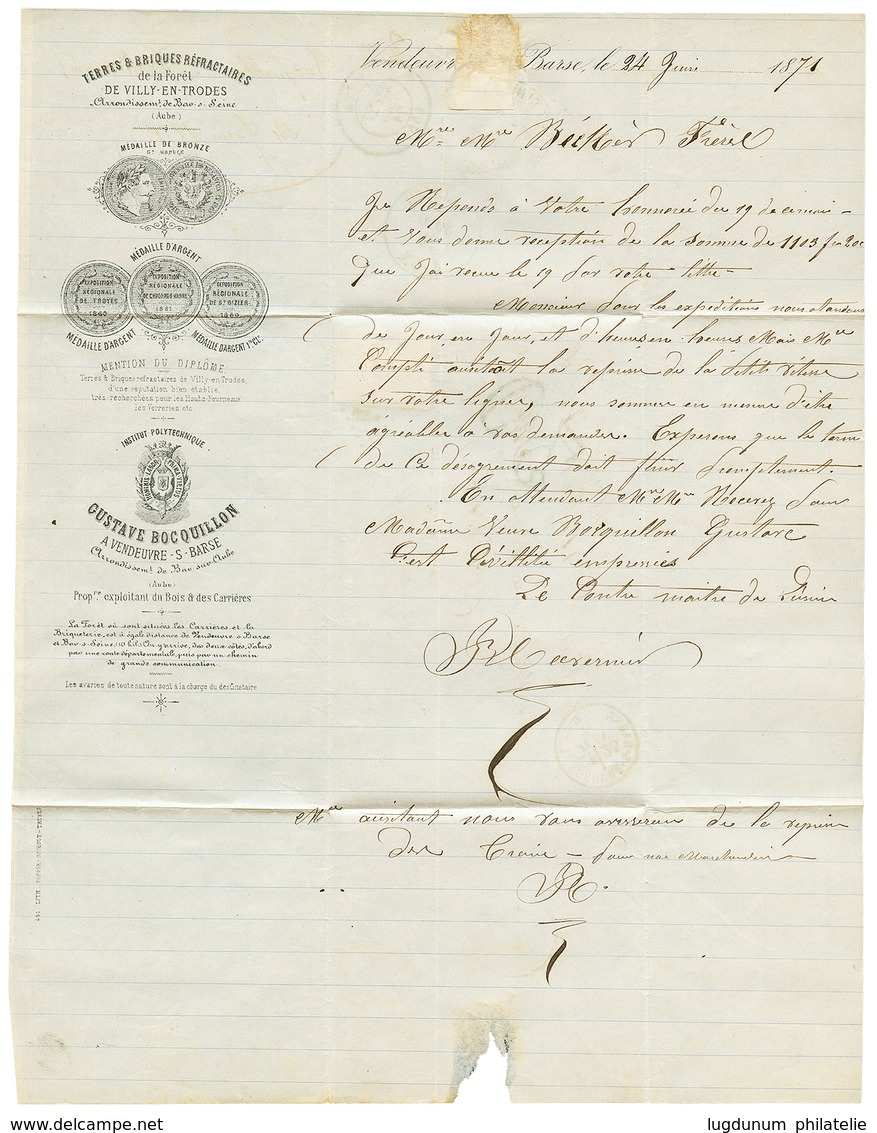 TERRES & BRIQUES RÉFRACTAIRES
de la Forêt
DE VILLY-EN-TRODES
Arrondissemt. de Bar-s-Seine
(Aube)
MÉDAILLE DE BRONZE
Gd MODULE
MÉDAILLE D'ARGENT
EXPOSITION RÉGIONALE DE TROYES 1860
EXPOSITION RÉGIONALE 1861
EXPOSITION RÉGIONALE DE ST DIZIER 1860
MÉDAILLE D'ARGENT
MÉDAILLE D'ARGENT 1re CL.
MENTION DU DIPLÔME.
Terres & Briques réfractaires de Villy-en-Trodes,
d'une réputation bien établie,
très-recherchées pour les Hauts-Fourneaux
les Verreries, etc.
INSTITUT POLYTECHNIQUE
GUSTAVE BOCQUILLON
A VENDEUVRE-S-BARSE
Arrondissemt. de Bar-sur-Aube
(Aube)
Propre exploitant du Bois & des Carrières
La Forêt où sont situées les Carrières et la
Briqueterie, est à égale distance de Vendeuvre s Barse
et Bar-s-Seine (10 kil.) On y arrive, des deux côtés, d'abord
par une route départementale, puis par un chemin
de grande communication.
Les avaries de toute nature sont à la charge du destinataire
Vendeuvre Barse, le 24 Juin 1871
Mre Mre Frères
Je Reponds à Votre honnorée du 19 de ce mois -
et Vous donne reception de la somme de 1103 fr 20c
que J'ai recue le 19 par votre lettre -
Monsieur pour les expeditions nous atendons
de Jour en Jour, et d'heure en heure Mais Mre
aussitôt la reprise de la petite vitesse
sur votre ligne, nous sommes en mesure d'etre
agréable à vos demandes. Experons que le terme
de Ce désagrement doit finir promptement.
En attendant Mre Mre Recevez pour
Madame Veuve Bocquillon Gustave
empressées
Le Contre maitre de
Mre aussitant nous vous aviserons de la reprise
des pour nos Marchandises
R.
lugdunum philatelie